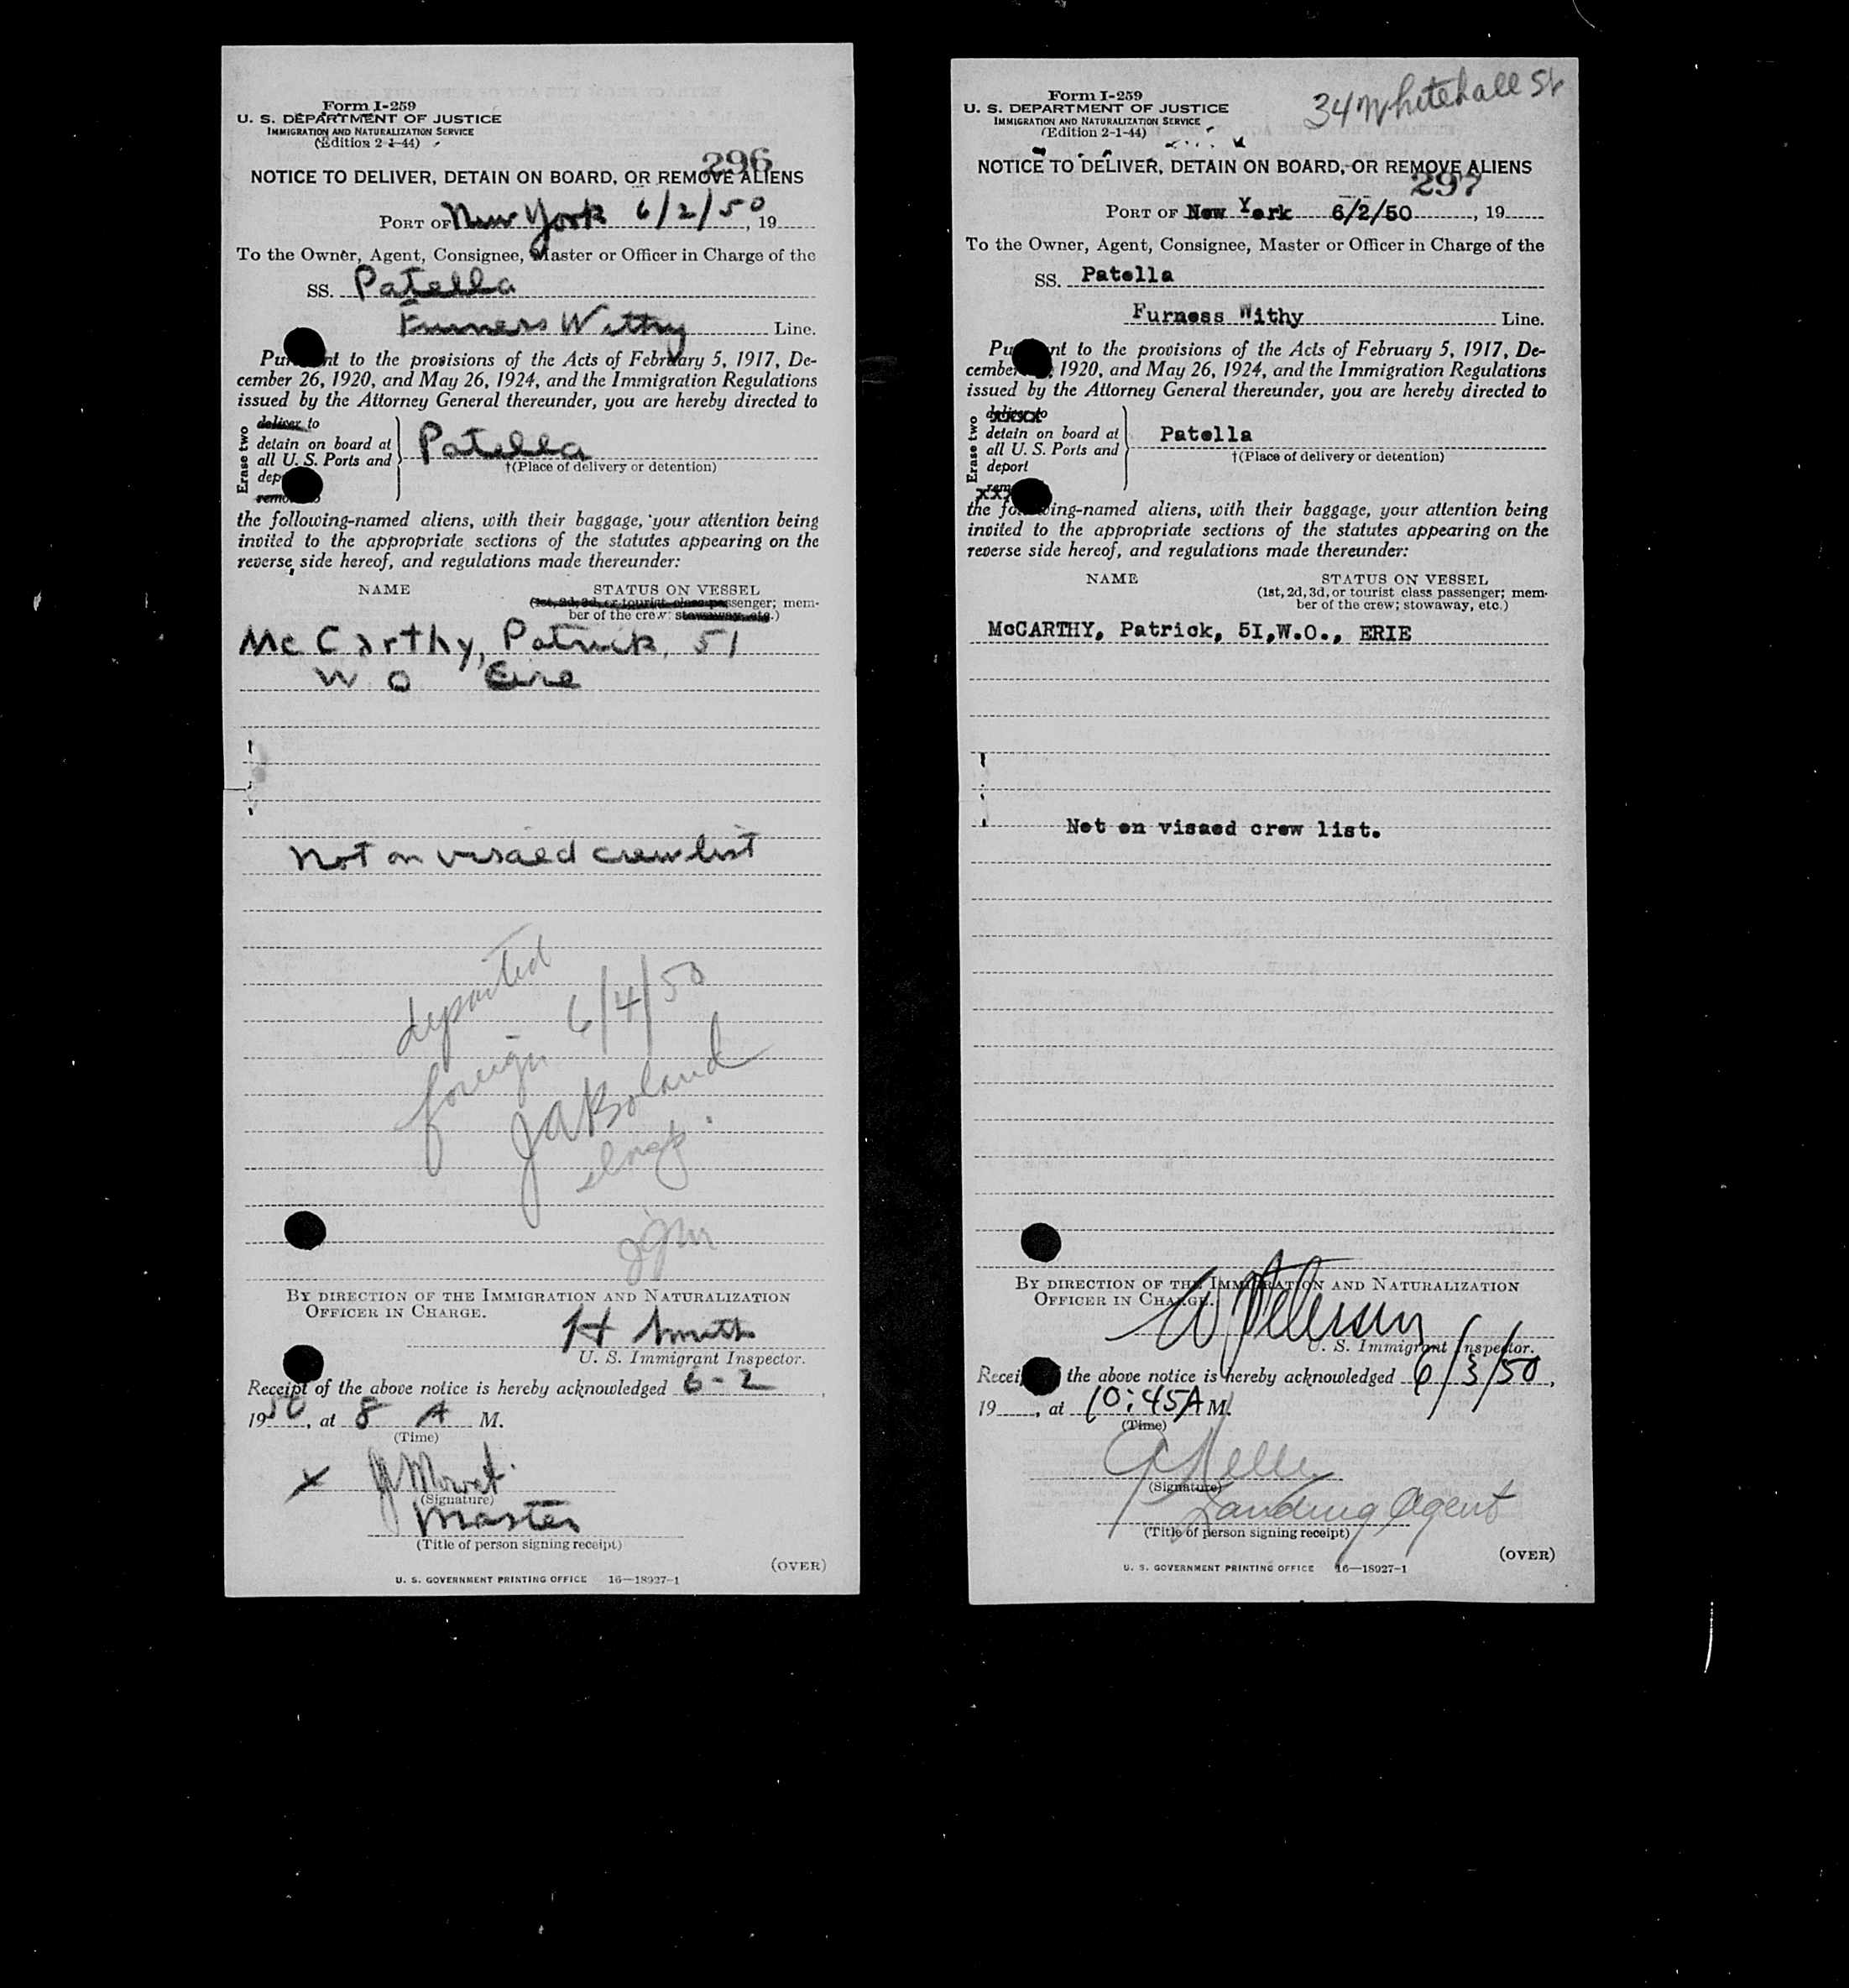 Form I-259
U. S. DEPARTMENT OF JUSTICE
IMMIGRATION AND NATURALIZATION SERVICE
(Edition 2-1-44)
296
NOTICE TO DELIVER, DETAIN ON BOARD, OR REMOVE ALIENS
PORT OF New York 6/2/50, 19
To the Owner, Agent, Consignee, Master or Officer in Charge of the
SS. Patella
Furness Withy Line.
Pursuant to the provisions of the Acts of February 5, 1917, De-
cember 26, 1920, and May 26, 1924, and the Immigration Regulations
issued by the Attorney General thereunder, you are hereby directed to
Erase two
deliver to
detain on board at
all U. S. Ports and
dep
remo
Patella
†(Place of delivery or detention)
the following-named aliens, with their baggage, your attention being
invited to the appropriate sections of the statutes appearing on the
reverse side hereof, and regulations made thereunder:
NAME STATUS ON VESSEL
(1st, 2d, 3d, or tourist class passenger; mem-
ber of the crew; stowaway, etc.)
McCarthy, Patrick, 51
W O Eire
Not on visaed crew list
departed
foreign 6/4/50
JA Boland
jgm
BY DIRECTION OF THE IMMIGRATION AND NATURALIZATION
OFFICER IN CHARGE.
H Smith
U. S. Immigrant Inspector.
Receipt of the above notice is hereby acknowledged 6-2,
1950, at 8 A M.
(Time)
x J Mowat
(Signature)
Master
(Title of person signing receipt)
(OVER)
U. S. GOVERNMENT PRINTING OFFICE 16—18927-1
34 Whitehall St
Form I-259
U. S. DEPARTMENT OF JUSTICE
IMMIGRATION AND NATURALIZATION SERVICE
(Edition 2-1-44)
NOTICE TO DELIVER, DETAIN ON BOARD, OR REMOVE ALIENS
297
PORT OF New York 6/2/50, 19
To the Owner, Agent, Consignee, Master or Officer in Charge of the
SS. Patella
Furness Withy Line.
Pursuant to the provisions of the Acts of February 5, 1917, De-
cember 26, 1920, and May 26, 1924, and the Immigration Regulations
issued by the Attorney General thereunder, you are hereby directed to
Erase two
deliver to
detain on board at
all U. S. Ports and
deport
rem
Patella
†(Place of delivery or detention)
the following-named aliens, with their baggage, your attention being
invited to the appropriate sections of the statutes appearing on the
reverse side hereof, and regulations made thereunder:
NAME STATUS ON VESSEL
(1st, 2d, 3d, or tourist class passenger; mem-
ber of the crew; stowaway, etc.)
McCARTHY, Patrick, 5I,W.O., ERIE
Not on visaed crew list.
BY DIRECTION OF THE IMMIGRATION AND NATURALIZATION
OFFICER IN CHARGE.
U. S. Immigrant Inspector.
Receipt of the above notice is hereby acknowledged 6/3/50,
19, at 10:45A M.
(Time)
(Signature)
Landing Agent
(Title of person signing receipt)
(OVER)
U. S. GOVERNMENT PRINTING OFFICE 16—18927-1